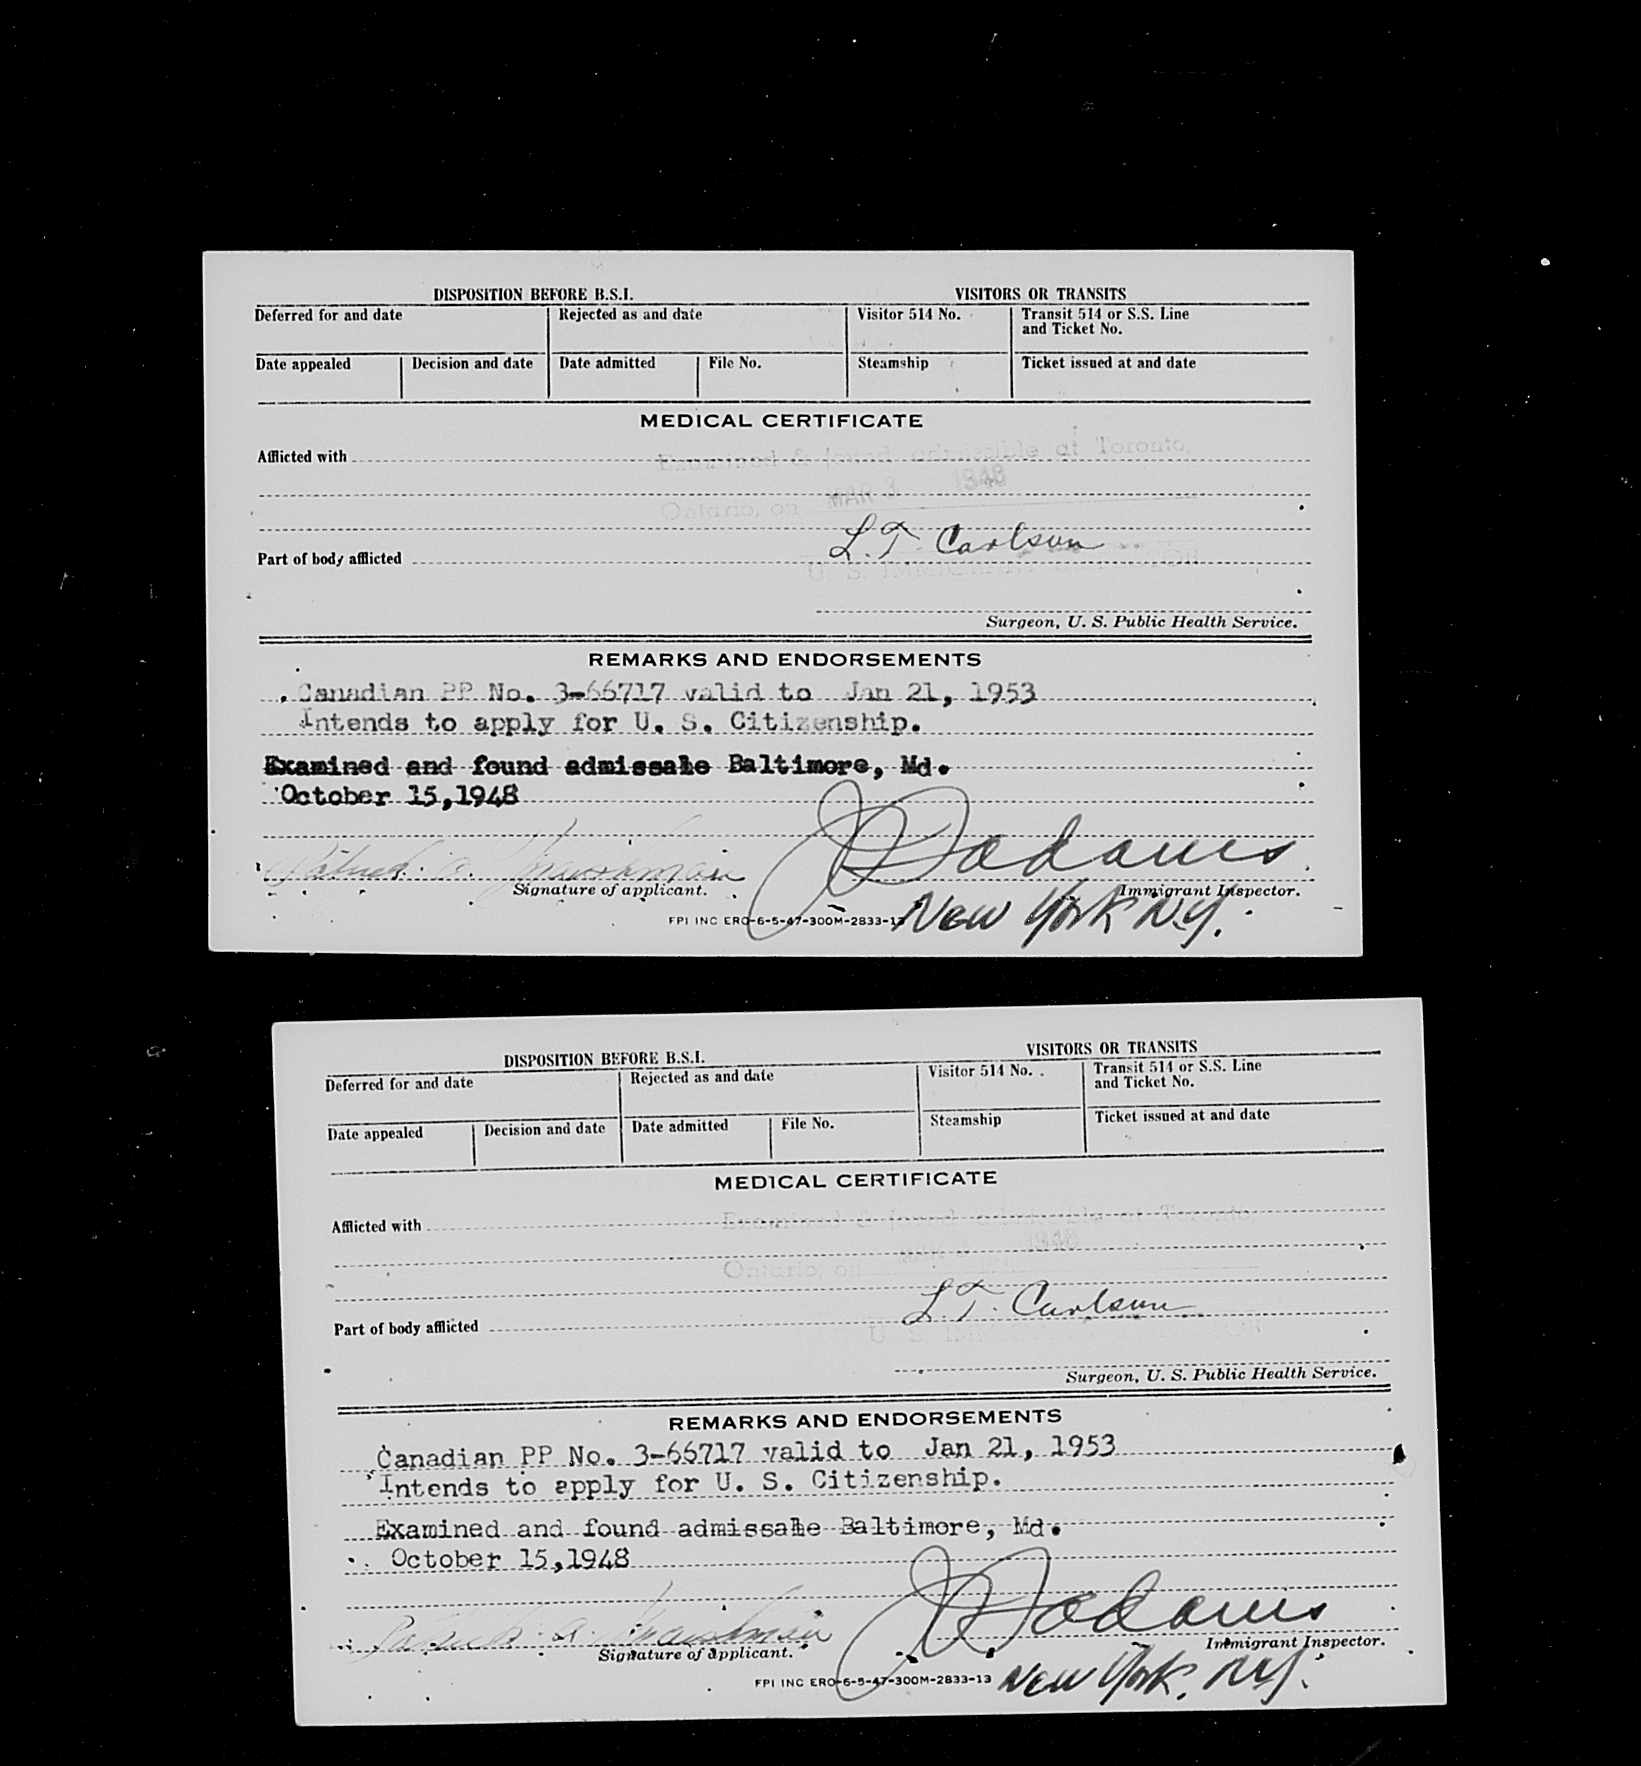 DISPOSITION BEFORE B.S.I. VISITORS OR TRANSITS
Deferred for and date Rejected as and date Visitor 514 No. Transit 514 or S.S. Line
and Ticket No.
Date appealed Decision and date Date admitted File No. Steamship Ticket issued at and date
MEDICAL CERTIFICATE
Afflicted with Examined & found admissible at Toronto,
Ontario, on MAR 3 1948
L. T. Carlson
Part of body afflicted
U. S. IMMIGRANT INSPECTOR
Surgeon, U. S. Public Health Service.
REMARKS AND ENDORSEMENTS
Canadian PP No. 3-66717 valid to Jan 21, 1953
Intends to apply for U. S. Citizenship.
Examined and found admissable Baltimore, Md.
October 15,1948
Patrick a. Adams
Signature of applicant. Immigrant Inspector.
FPI INC ERO-6-5-47-300M-2833-13 New York N.Y.
DISPOSITION BEFORE B.S.I. VISITORS OR TRANSITS
Deferred for and date Rejected as and date Visitor 514 No. Transit 514 or S.S. Line
and Ticket No.
Date appealed Decision and date Date admitted File No. Steamship Ticket issued at and date
MEDICAL CERTIFICATE
Afflicted with Examined & found admissible at Toronto,
Ontario, on MAR 1948
L. T. Carlson
Part of body afflicted
U. S.
Surgeon, U. S. Public Health Service.
REMARKS AND ENDORSEMENTS
Canadian PP No. 3-66717 valid to Jan 21, 1953
Intends to apply for U. S. Citizenship.
Examined and found admissable Baltimore, Md.
October 15,1948
Patrick a. Adams
Signature of applicant. Immigrant Inspector.
FPI INC ERO-6-5-47-300M-2833-13 New York, N.Y.